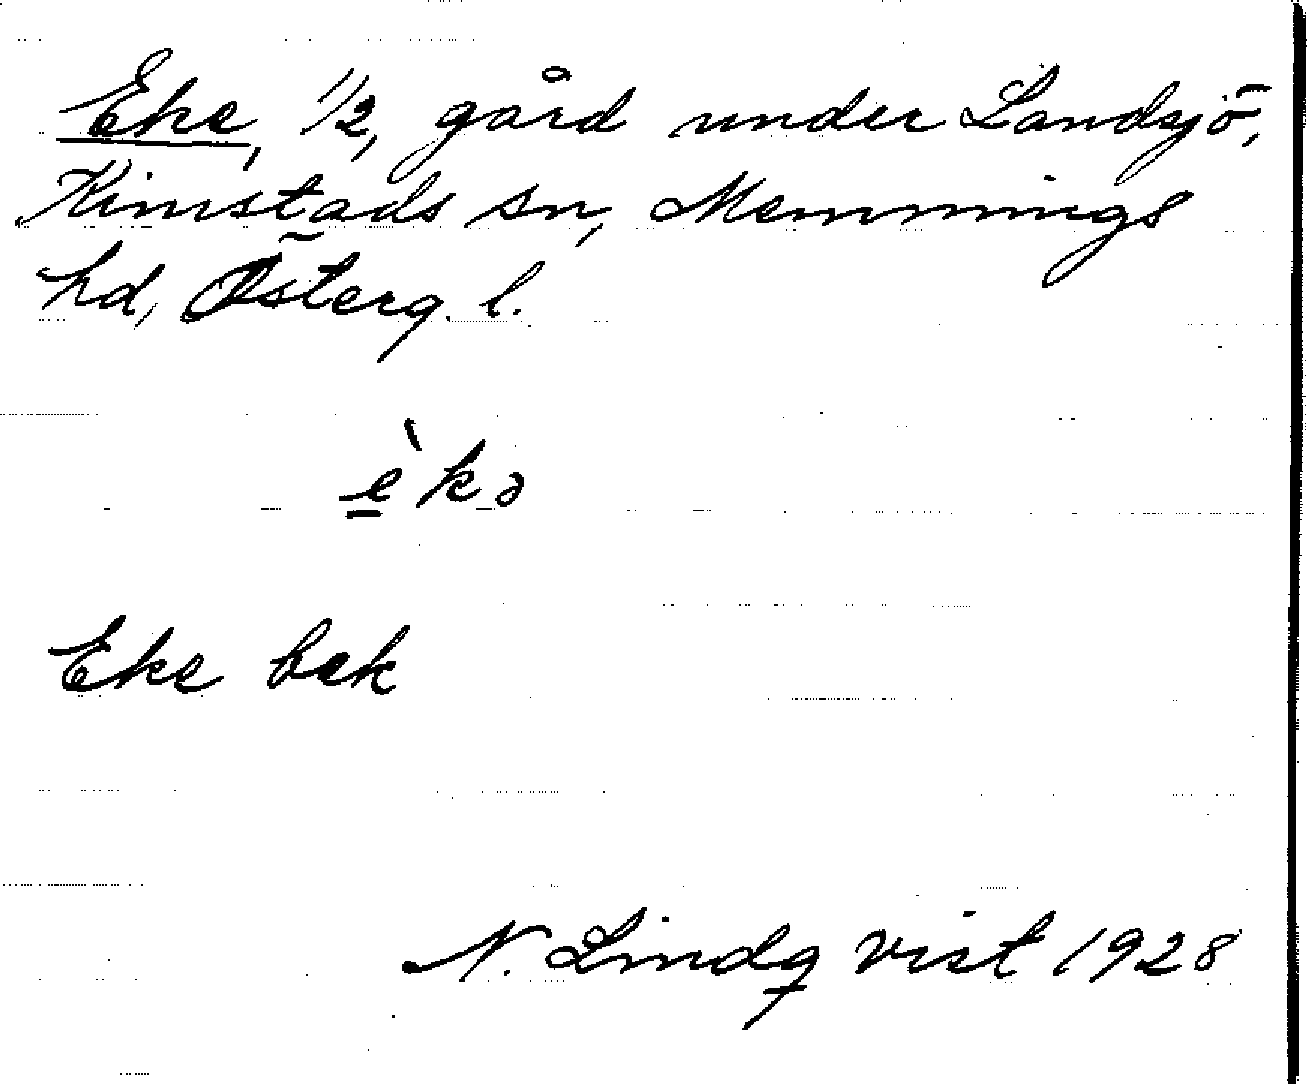 Eke, 1/2, gård under Landsjö,
Kimstads sn, Memmings
hd, Österg. l.
è̱kə
Eke bek
N. Lindqvist 1928